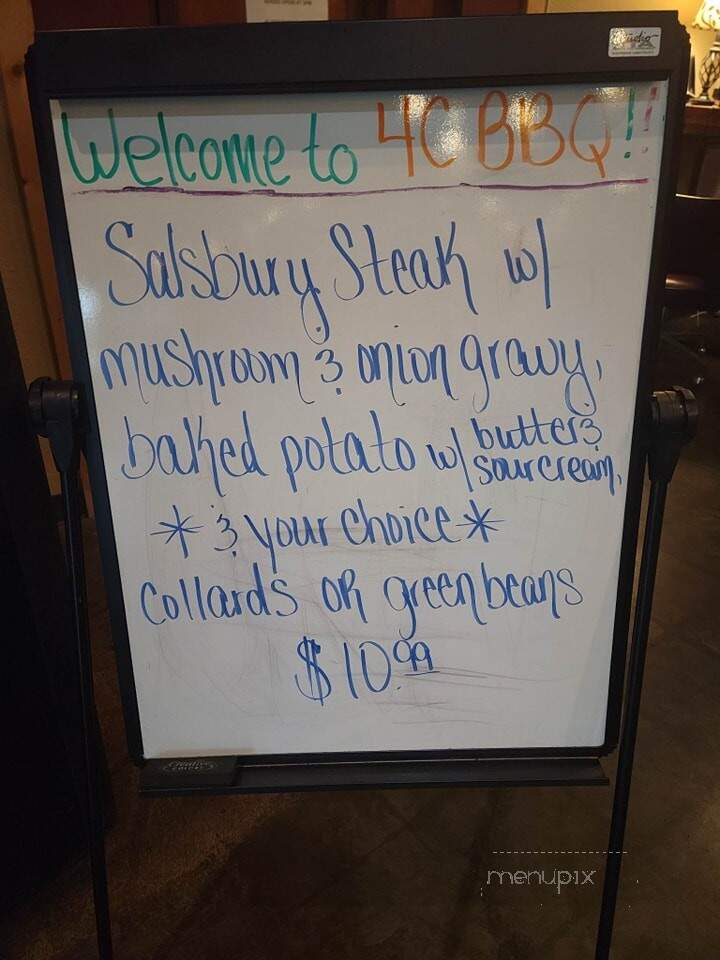 Welcome to 4C BBQ!!
Salsbury Steak w/
mushroom & onion gravy,
baked potato w/ butter &
sour cream,
* & your choice *
collards OR green beans
$10.99
menupix